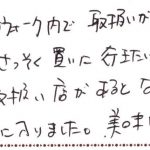 ウォーク内で 取扱いが
さっそく 買いに 行きたい
取扱い店が あると な
に入りました。美味し